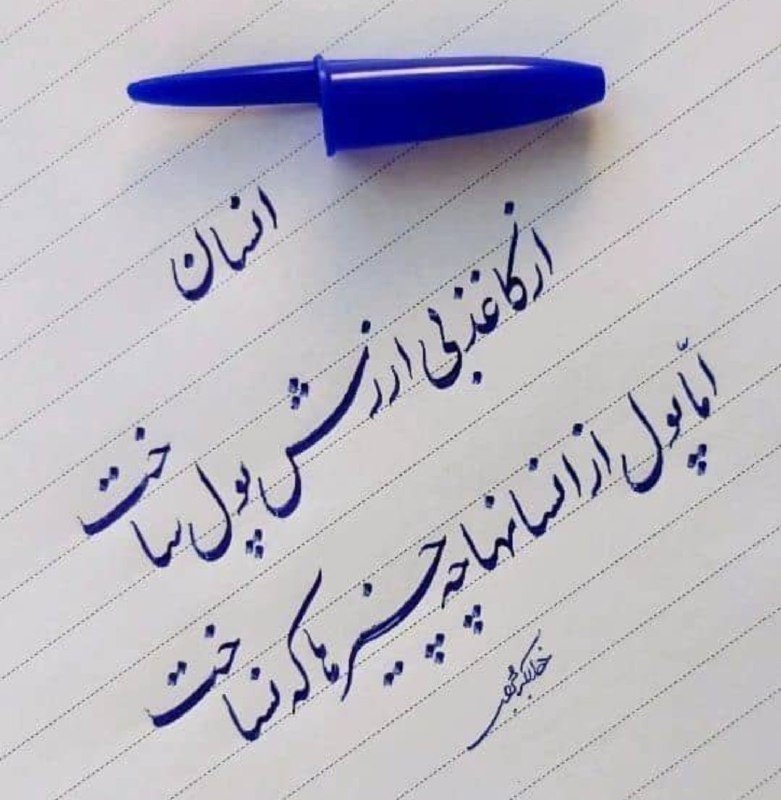 انسان
از کاغذ بی ارزش پول ساخت
امّا پول از انسانها چه چیزها که نساخت